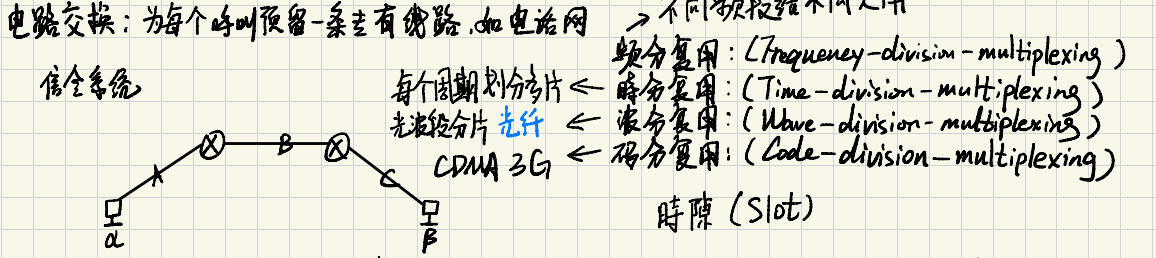 电路交换：为每个呼叫预留一条专有线路，如电话网
→ 不同频段给不同人用
信令系统
频分复用：(Frequency-division-multiplexing)
每个周期划分多片 ← 時分复用：(Time-division-multiplexing)
光波段分片 光纤 ← 波分复用：(Wave-division-multiplexing)
CDMA 3G ← 码分复用：(Code-division-multiplexing)
A B C
α β
時隙 (Slot)